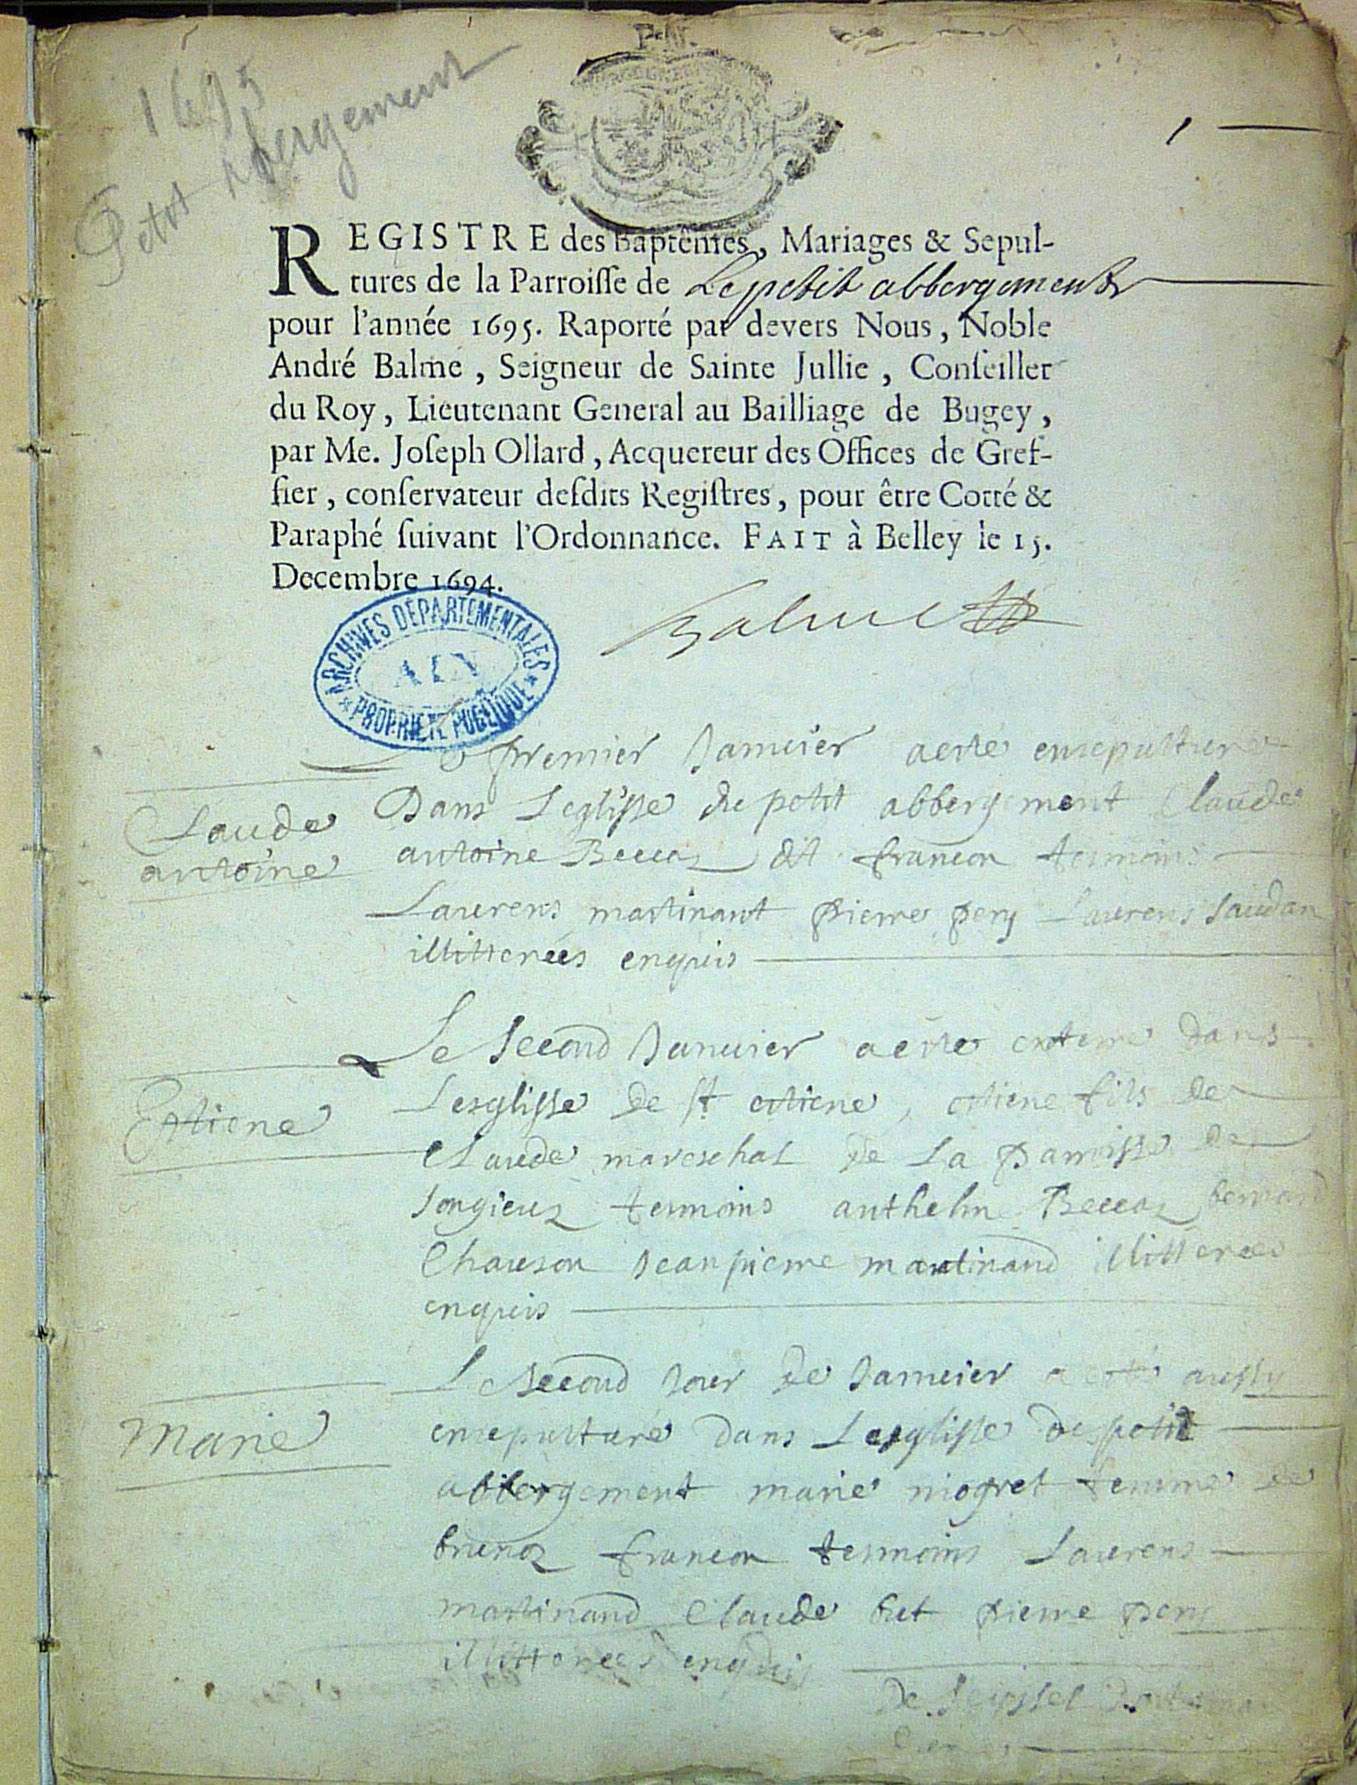 1695
Petit Abergement
P.N.
REGISTRE des Baptêmes, Mariages & Sepul-
tures de la Parroiſſe de Le petit abbergement
pour l'année 1695. Raporté par devers Nous, Noble
André Balme, Seigneur de Sainte Jullie, Conſeiller
du Roy, Lieutenant General au Bailliage de Bugey,
par Me. Joſeph Ollard, Acquereur des Offices de Gref-
fier, conſervateur deſdits Regiſtres, pour être Cotté &
Paraphé ſuivant l'Ordonnance. FAIT à Belley le 15.
Decembre 1694.
Balme
ARCHIVES DÉPARTEMENTALES
AIN
PROPRIÉTÉ PUBLIQUE
premier Januier a esté ensepulturé
Claude antoine
Dans Leglisse du petit abbergement Claude
antoine Beccaz dit francon tesmoins
Laurens martinant pierre pery Laurens Jaudan
illitterées enquis
Le Second Januier a esté enterré dans
Estiene
Lesglisse de st estiene, estiene fils de
Claude mareschal de La Parroisse de
Songieuz tesmoins anthelme Beccaz bernard
Chauson Jean pierre martinand illitterées
enquis
Le Second Jour de Januier a esté aussy
Marie
ensepulturé dans Lesglisse de petit
abbergement marie niogret femme de
brunoz francon tesmoins Laurens
martinand Claude but pierre pery
illitterées enquis
De Seyssel